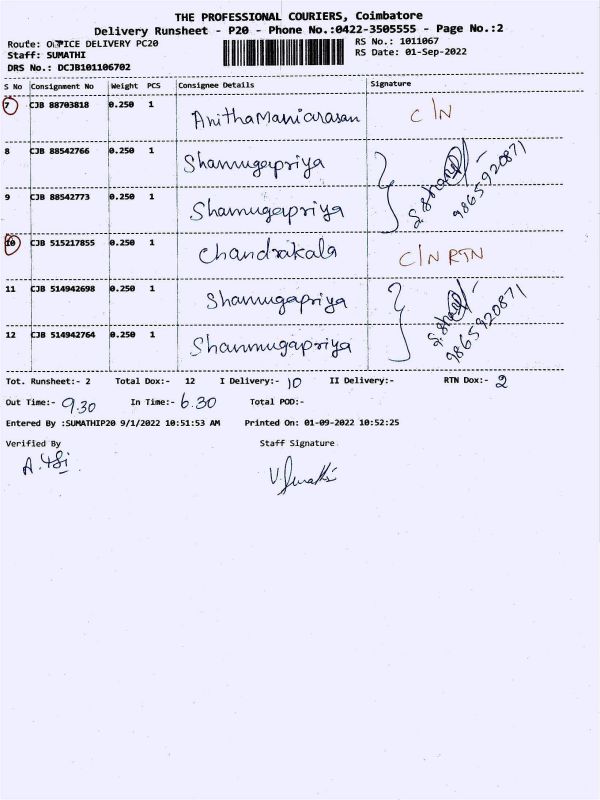 THE PROFESSIONAL COURIERS, Coimbatore
Delivery Runsheet - P20 - Phone No.:0422-3505555 - Page No.:2
Route: OFFICE DELIVERY PC20
RS No.: 1011067
Staff: SUMATHI
RS Date: 01-Sep-2022
DRS No.: DCJB101106702
S No Consignment No Weight PCS Consignee Details Signature
7 CJB 88703818 0.250 1 C/N
8 CJB 88542766 0.250 1 Shanmugapriya
9865920871
9 CJB 88542773 0.250 1 Shanmugapriya
10 CJB 515217855 0.250 1 Chandrakala C/N RTN
11 CJB 514942698 0.250 1 Shanmugapriya
9865920871
12 CJB 514942764 0.250 1 Shanmugapriya
Tot. Runsheet:- 2 Total Dox:- 12 I Delivery:- 10 II Delivery:- RTN Dox:- 2
Out Time:- 9.30 In Time:- 6.30 Total POD:-
Entered By :SUMATHIP20 9/1/2022 10:51:53 AM Printed On: 01-09-2022 10:52:25
Verified By Staff Signature